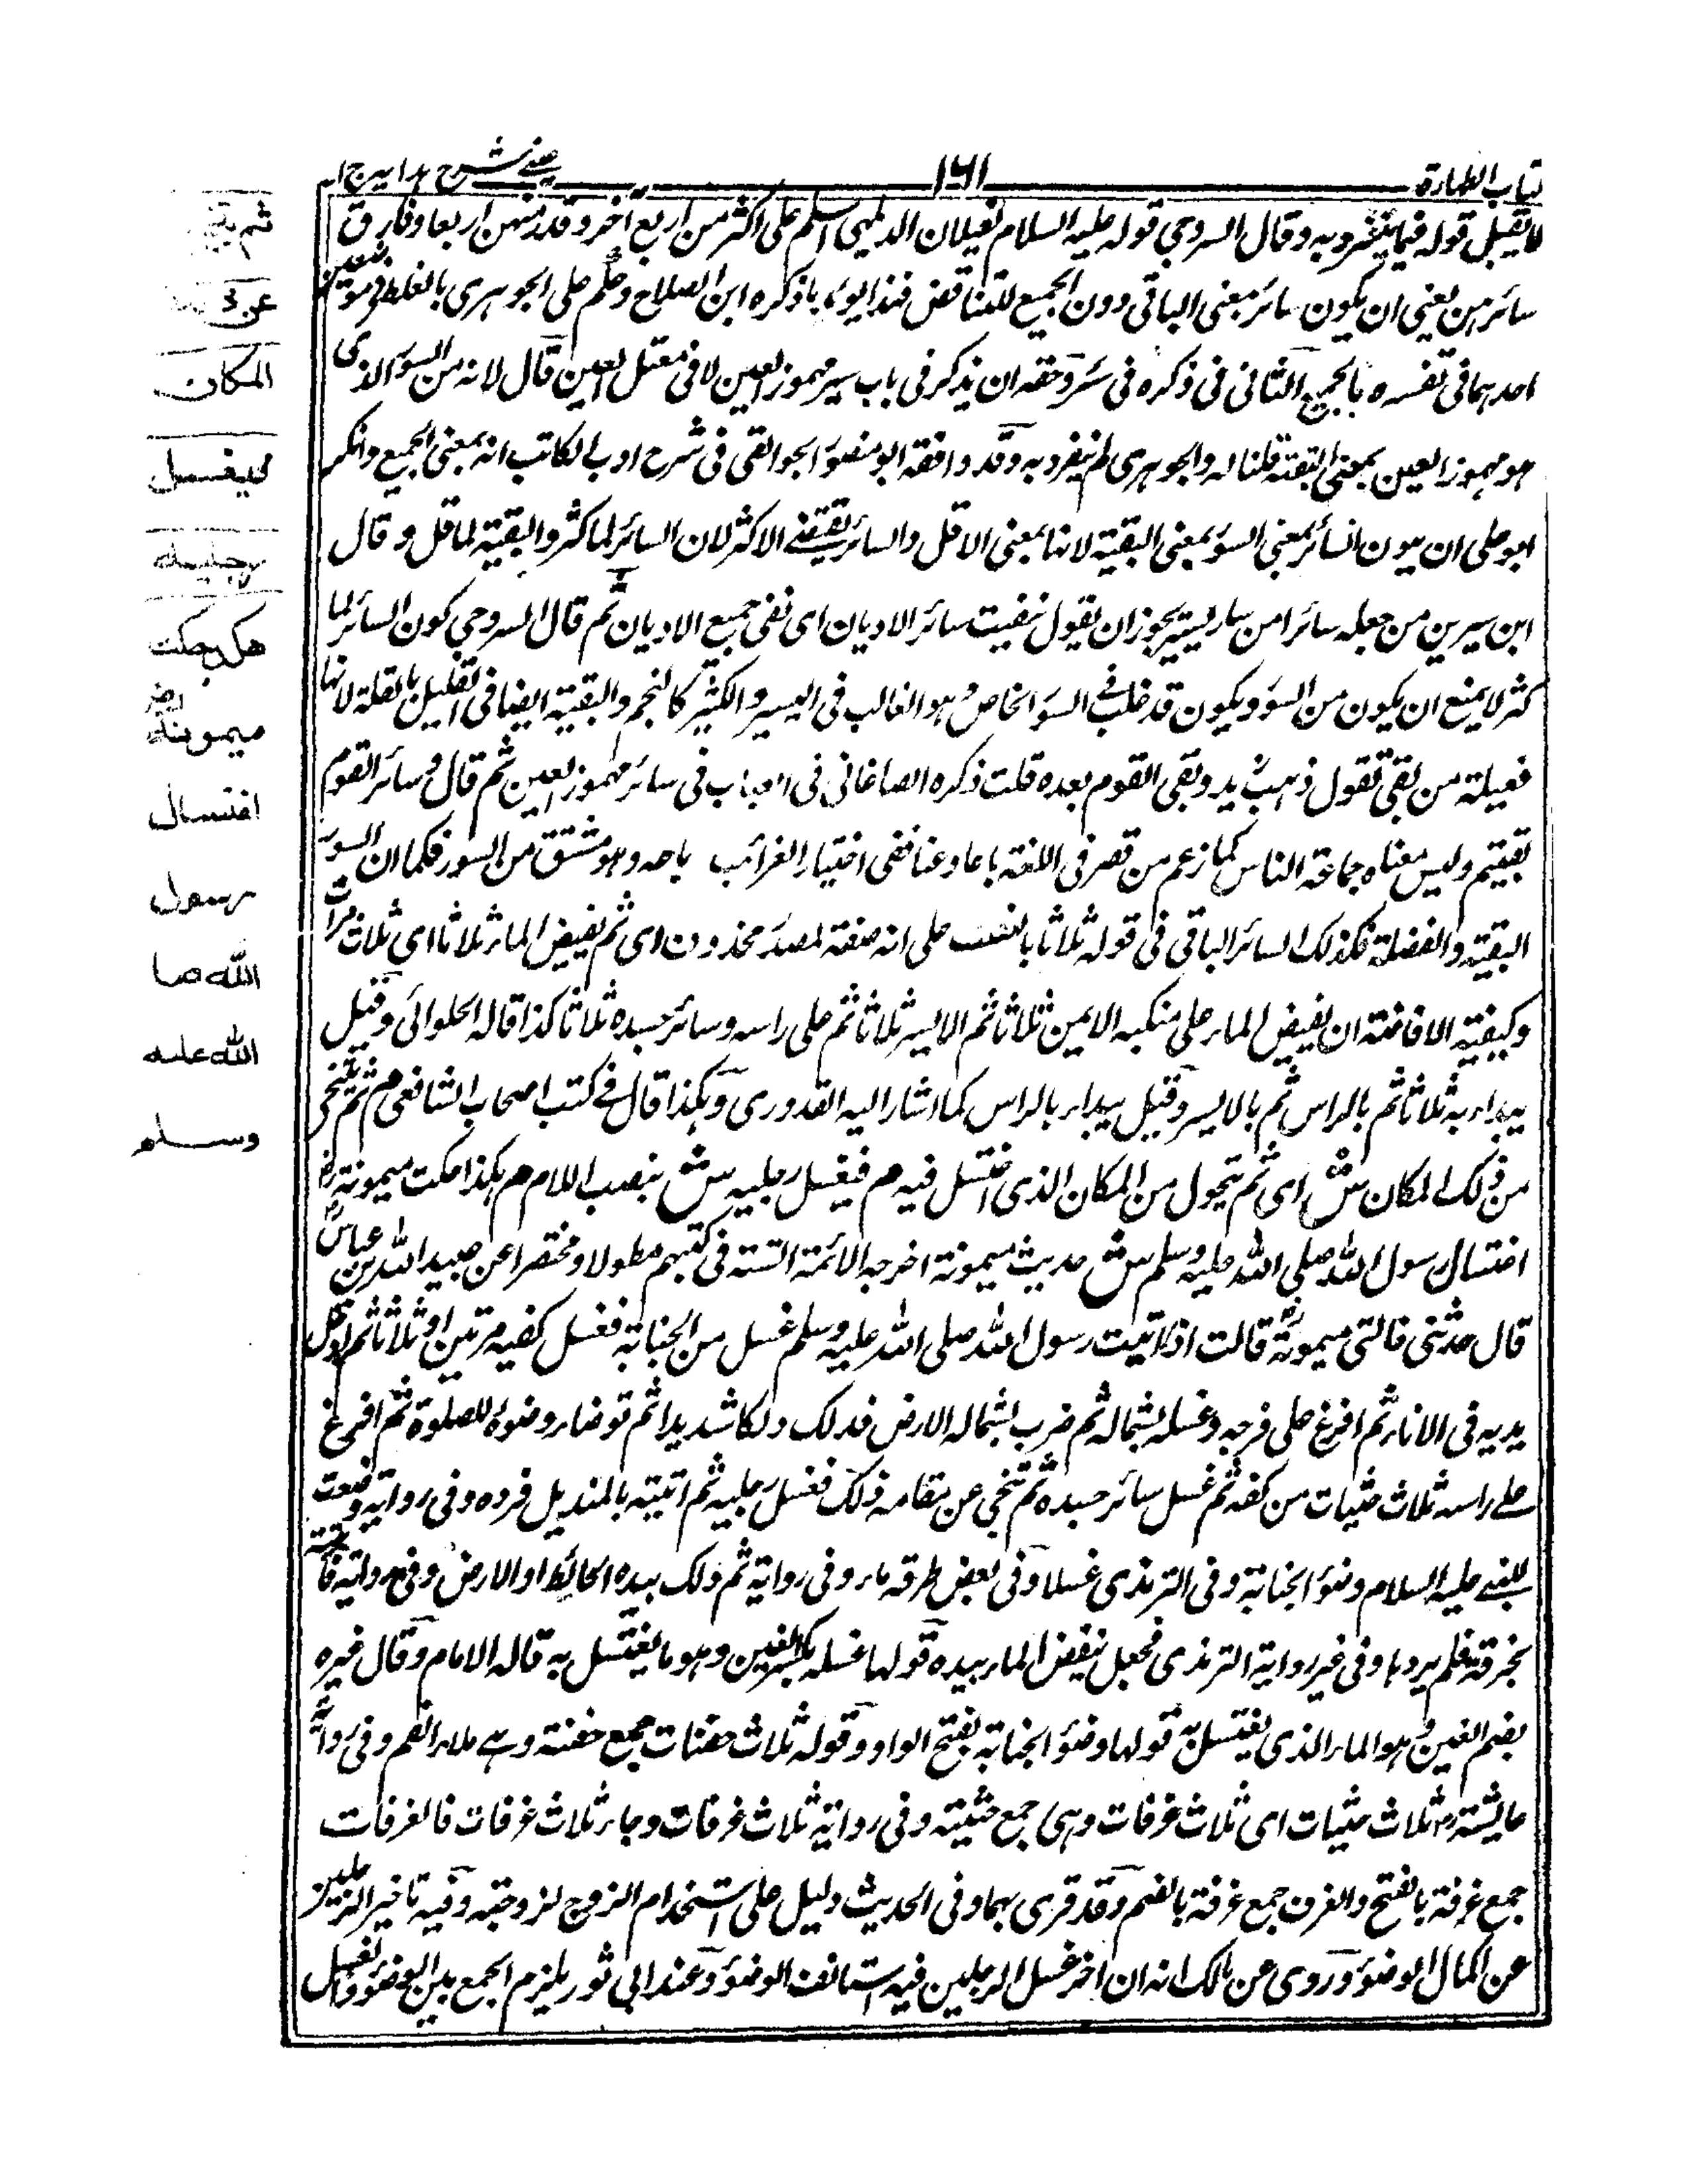 كتاب الطهارة
١٦١
عينى شرح هدايه ج ١
لا يقبل قوله فيما ينفرد به وقال السروجى قوله عليه السلام لغيلان الديلمى اسلم على اكثر من اربع آخر وقد منهن اربعا وفارق
سائرهن يعنى ان يكون سائر بمعنى الباقى دون الجميع للتناقض فهذا يؤيد ما ذكره ابن الصلاح وحكم على الجوهرى بالغلط فى موضعين
احدهما فى تفسيره بالجميع الثانى فى ذكره فى سَرَ وحقه ان يذكر فى باب سير مهموز العين لا فى معتل العين قال لانه من السؤر الذى
هو مهموز العين بمعنى البقية قلنا له والجوهرى لم ينفرد به وقد وافقه ابو منصور الجواليقى فى شرح ادب الكاتب انه بمعنى الجميع وانكر
ابو على ان يكون السائر بمعنى السؤر بمعنى البقية لانها بمعنى الاقل والسائر يقتضى الاكثر لان السائر لما كثر والبقية لما قل وقال
ابن سيرين من جعله سائرا من سار يسير يجوز ان يقول نفيت سائر الاديان اى نفى جميع الاديان ثم قال السروجى كون السائر لما
كثر لا يمنع ان يكون من السؤر ويكون قد غلب فى السؤر الخاص وهو الغالب فى اليسير والكثير كالنجم والبقية ايضا فى القليل بالقلة لانها
فعيلة من بقى تقول ذهب زيد وبقى القوم بعده قلت ذكره الصاغانى فى العباب فى سائر مهموز العين ثم قال وسائر القوم
بقيتهم وليس معناه جماعة الناس كما زعم من قصر فى اللغة باعا وعنا ففى اختيار الغرائب باحد وهو مشتق من السور فكما ان السور
البقية والفضلة فكذلك السائر الباقى فى قوله ثلاثا بالنصب على انه صفة لمصدر محذوف اى ثم يفيض الماء ثلاثا اى ثلاث مرات
وكيفية الافاضة ان يفيض الماء على منكبه الايمن ثلاثا ثم الايسر ثلاثا ثم على راسه وسائر جسده ثلاثا كذا قاله الحلوائى وقيل
يبداء به ثلاثا ثم بالراس ثم بالايسر وقيل يبداء بالراس كما اشار اليه القدورى وهكذا قال فى كتب اصحاب الشافعى م ثم يتنحى
من ذلك المكان ش اى ثم يتحول من المكان الذى اغتسل فيه م فيغسل رجليه ش بنصب اللام م هكذا حكت ميمونة رض
اغتسال رسول الله صلى الله عليه وسلم ش حديث ميمونة اخرجه الائمة الستة فى كتبهم مطولا ومختصرا عن عبيد الله بن عباس رض
قال حدثتنى خالتى ميمونة رض قالت اذا اتيت رسول الله صلى الله عليه وسلم غسل من الجنابة فغسل كفيه مرتين او ثلاثا ثم ادخل
يديه فى الاناء ثم افرغ على فرجه وغسله بشماله ثم ضرب بشماله الارض فدلك دلكا شديدا ثم توضاء وضوؤه للصلوة ثم افرغ
على راسه ثلاث حثيات من كفه ثم غسل سائر جسده ثم تنحى عن مقامه ذلك فغسل رجليه ثم اتيته بالمنديل فرده وفى رواية وضعت
للنبى عليه السلام وضوء الجنابة وفى الترمذى غسلا وفى بعض طرقه ماء وفى رواية ثم دلك بيده الحائط او الارض وفى رواية فاتيته
بخرقة فلم يردها وفى غير رواية الترمذى فجعل ينفض الماء بيده قولها غسله بكسر الغين وهو ما يغتسل به قاله الامام وقال غيره
بضم الغين وهو الماء الذى يغتسل به قولها وضوء الجنابة بفتح الواو وقوله ثلاث حفنات جمع حفنة وهى ملاء الفم وفى رواية
عايشة رض ثلاث حثيات اى ثلاث غرفات وهى جمع حثية وفى رواية ثلاث غرفات وجاء ثلاث غرفات فالغرفات
جمع غرفة بالفتح والغرف جمع غرفة بالضم وقد قرى بهما وفى الحديث دليل على استخدام الزوج لزوجته وفيه تاخير الرجلين
عن اكمال الوضوء وروى عن مالك انه ان اخر غسل الرجلين فيه استانف الوضوء وعند ابى ثور يلزم الجمع بين الوضوء والغسل
ثم
عن
المكان
فيغسل
رجليه
هكذا حكت
ميمونة رض
اغتسال
رسول
الله صلى
الله عليه
وسلم